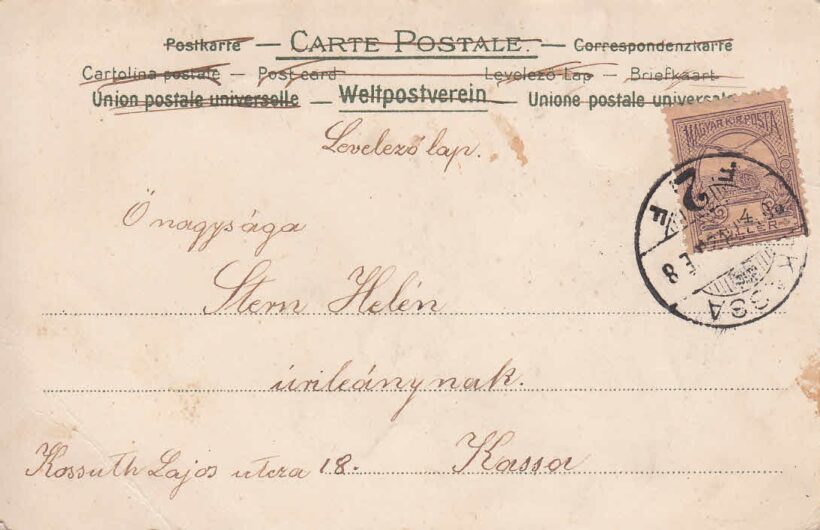 Postkarte — CARTE POSTALE. — Correspondenzkarte
Cartolina postale — Post card — Levelező Lap — Briefkaart
Union postale universelle — Weltpostverein — Unione postale universale
Levelező lap.
MAGYAR KIR. POSTA
Ő nagysága
2 FILLÉR
Stern Helén
KASSA
úrileánynak.
Kossuth Lajos utcza 18. Kassa